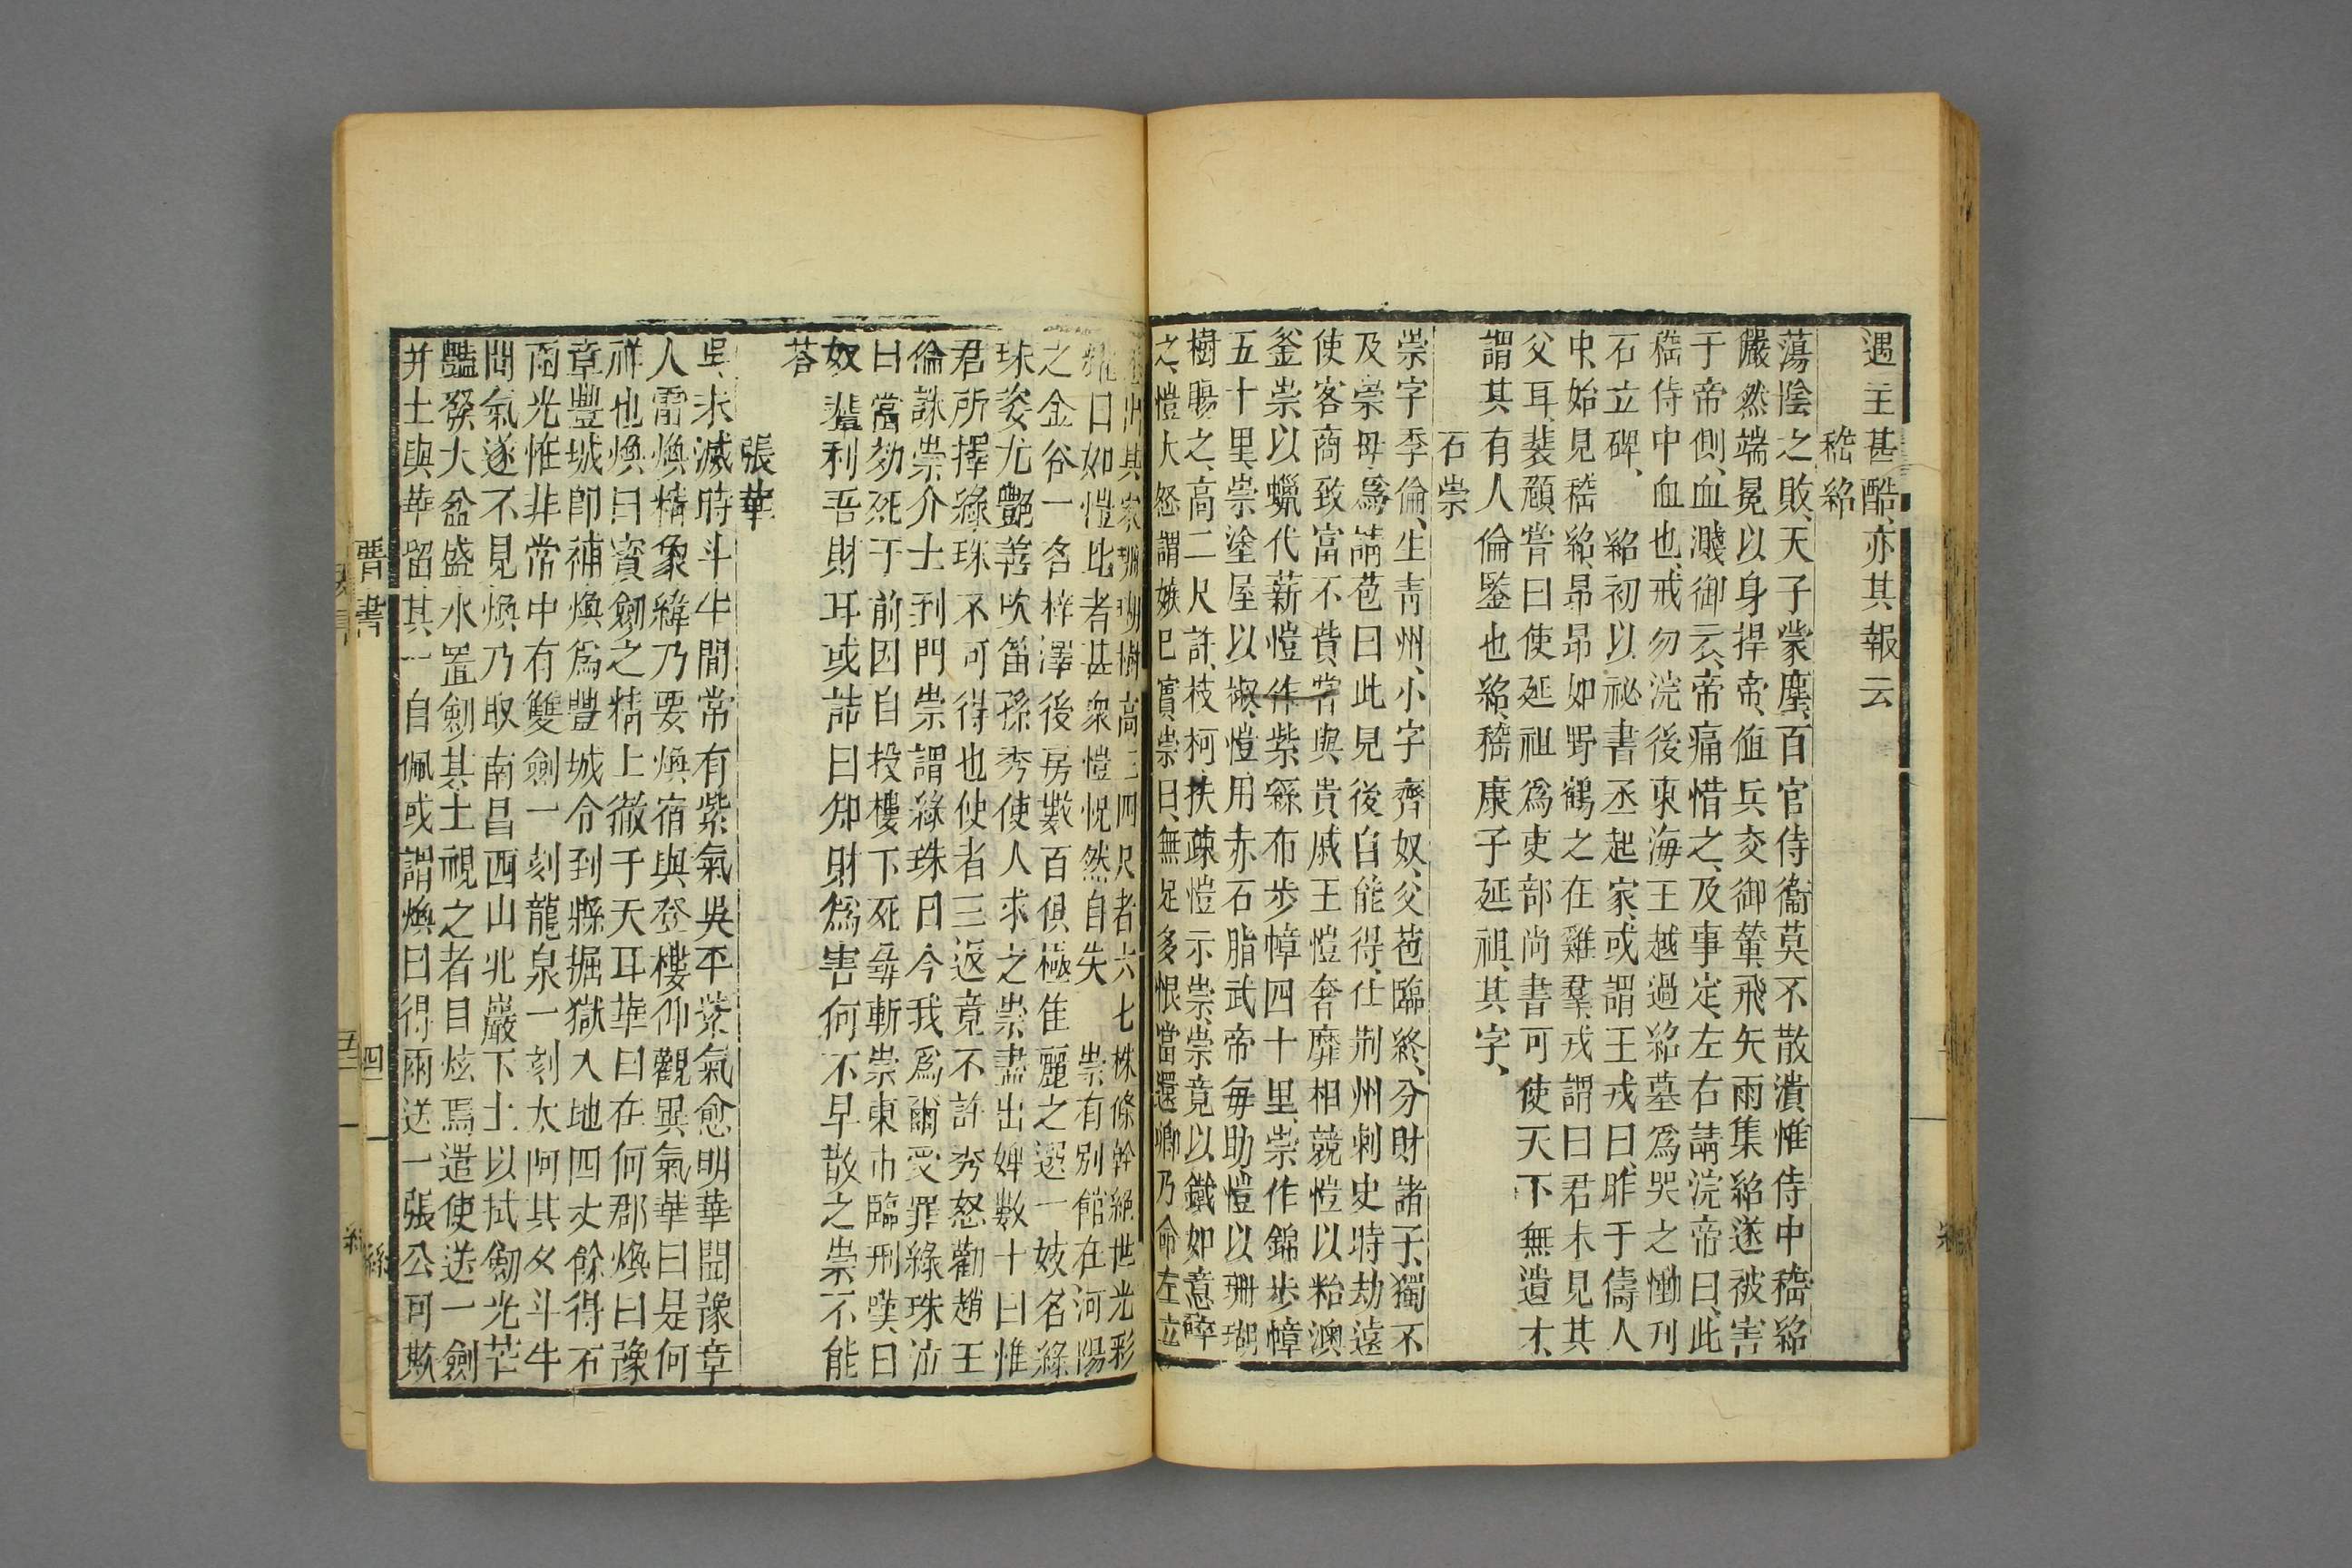 遇主甚酷、亦其報云
嵇紹
蕩陰之敗、天子蒙塵、百官侍衞莫不散潰惟侍中嵇紹
嚴然端冕以身捍帝、値兵交御輦、飛矢雨集紹遂被害
于帝側、血濺御云、帝痛惜之、及事定、左右請浣帝曰、此
嵇侍中血也、戒勿浣後東海王越過紹墓爲哭之慟刋
石立碑、紹初以祕書丞起家、或謂王戎曰、昨于儔人
中、始見嵇紹、昂昂如野鶴之在雞羣、戎謂曰君未見其
父耳裴頠嘗曰使延祖爲吏部尚書可使天下無遺才、
謂其有人倫鑒也紹、嵇康子延祖、其字、
石崇
崇字季倫、生青州、小字齊奴、父苞臨終、分財諸子、獨不
及崇母爲請苞曰此見後自能得、仕荆州刺史時劫遠
使客商致富不貲、嘗與貴戚王愷奢靡相競愷以粭澳
釜崇以蠟代薪愷作紫絲布步幛四十里、崇作錦步幛
五十里、崇塗屋以椒、愷用赤石脂武帝每助愷以珊瑚
樹賜之、高二尺許、枝柯扶疎愷示崇崇竟以鐵如意碎
之、愷大怒謂嫉巳寳崇曰、無足多恨當還卿乃命左立
出其家珊瑚樹高三四尺者六七株條幹絕世光彩
耀日如愷比者甚衆愷怳然自失　崇有別館在河陽
之金谷一名梓澤後房數百俱極隹麗之選一妓名綠
珠姿尤豔善吹笛孫秀使人求之崇盡出婢數十曰惟
君所擇綠珠不可得也使者三返竟不許秀怒勸趙王
倫誅崇介士到門崇謂綠珠曰今我爲爾受罪綠珠泣
曰當効死于前因自投樓下死毎斬崇東市臨刑嘆曰
奴輩利吾財耳或誥曰知財爲害何不早散之崇不能
荅
張華
吳未滅時斗牛間常有紫氣吳平紫氣愈明華聞豫章
人雷煥精象緯乃要煥宿與登樓仰觀異氣華曰是何
祥也煥曰寳劍之精上徹于天耳華曰在何郡煥曰豫
章豐城卽補煥爲豐城令到縣掘獄入地四丈餘得石
函光惟非常中有雙劍一刻龍泉一刻太阿其夕斗牛
間氣遂不見煥乃取南昌西山北巖下土以拭劍光芒
豔發大盆盛水置劍其土視之者目炫焉遣使送一劍
并土與華留其一自佩或謂煥曰得兩送一張公可欺
晋書
四